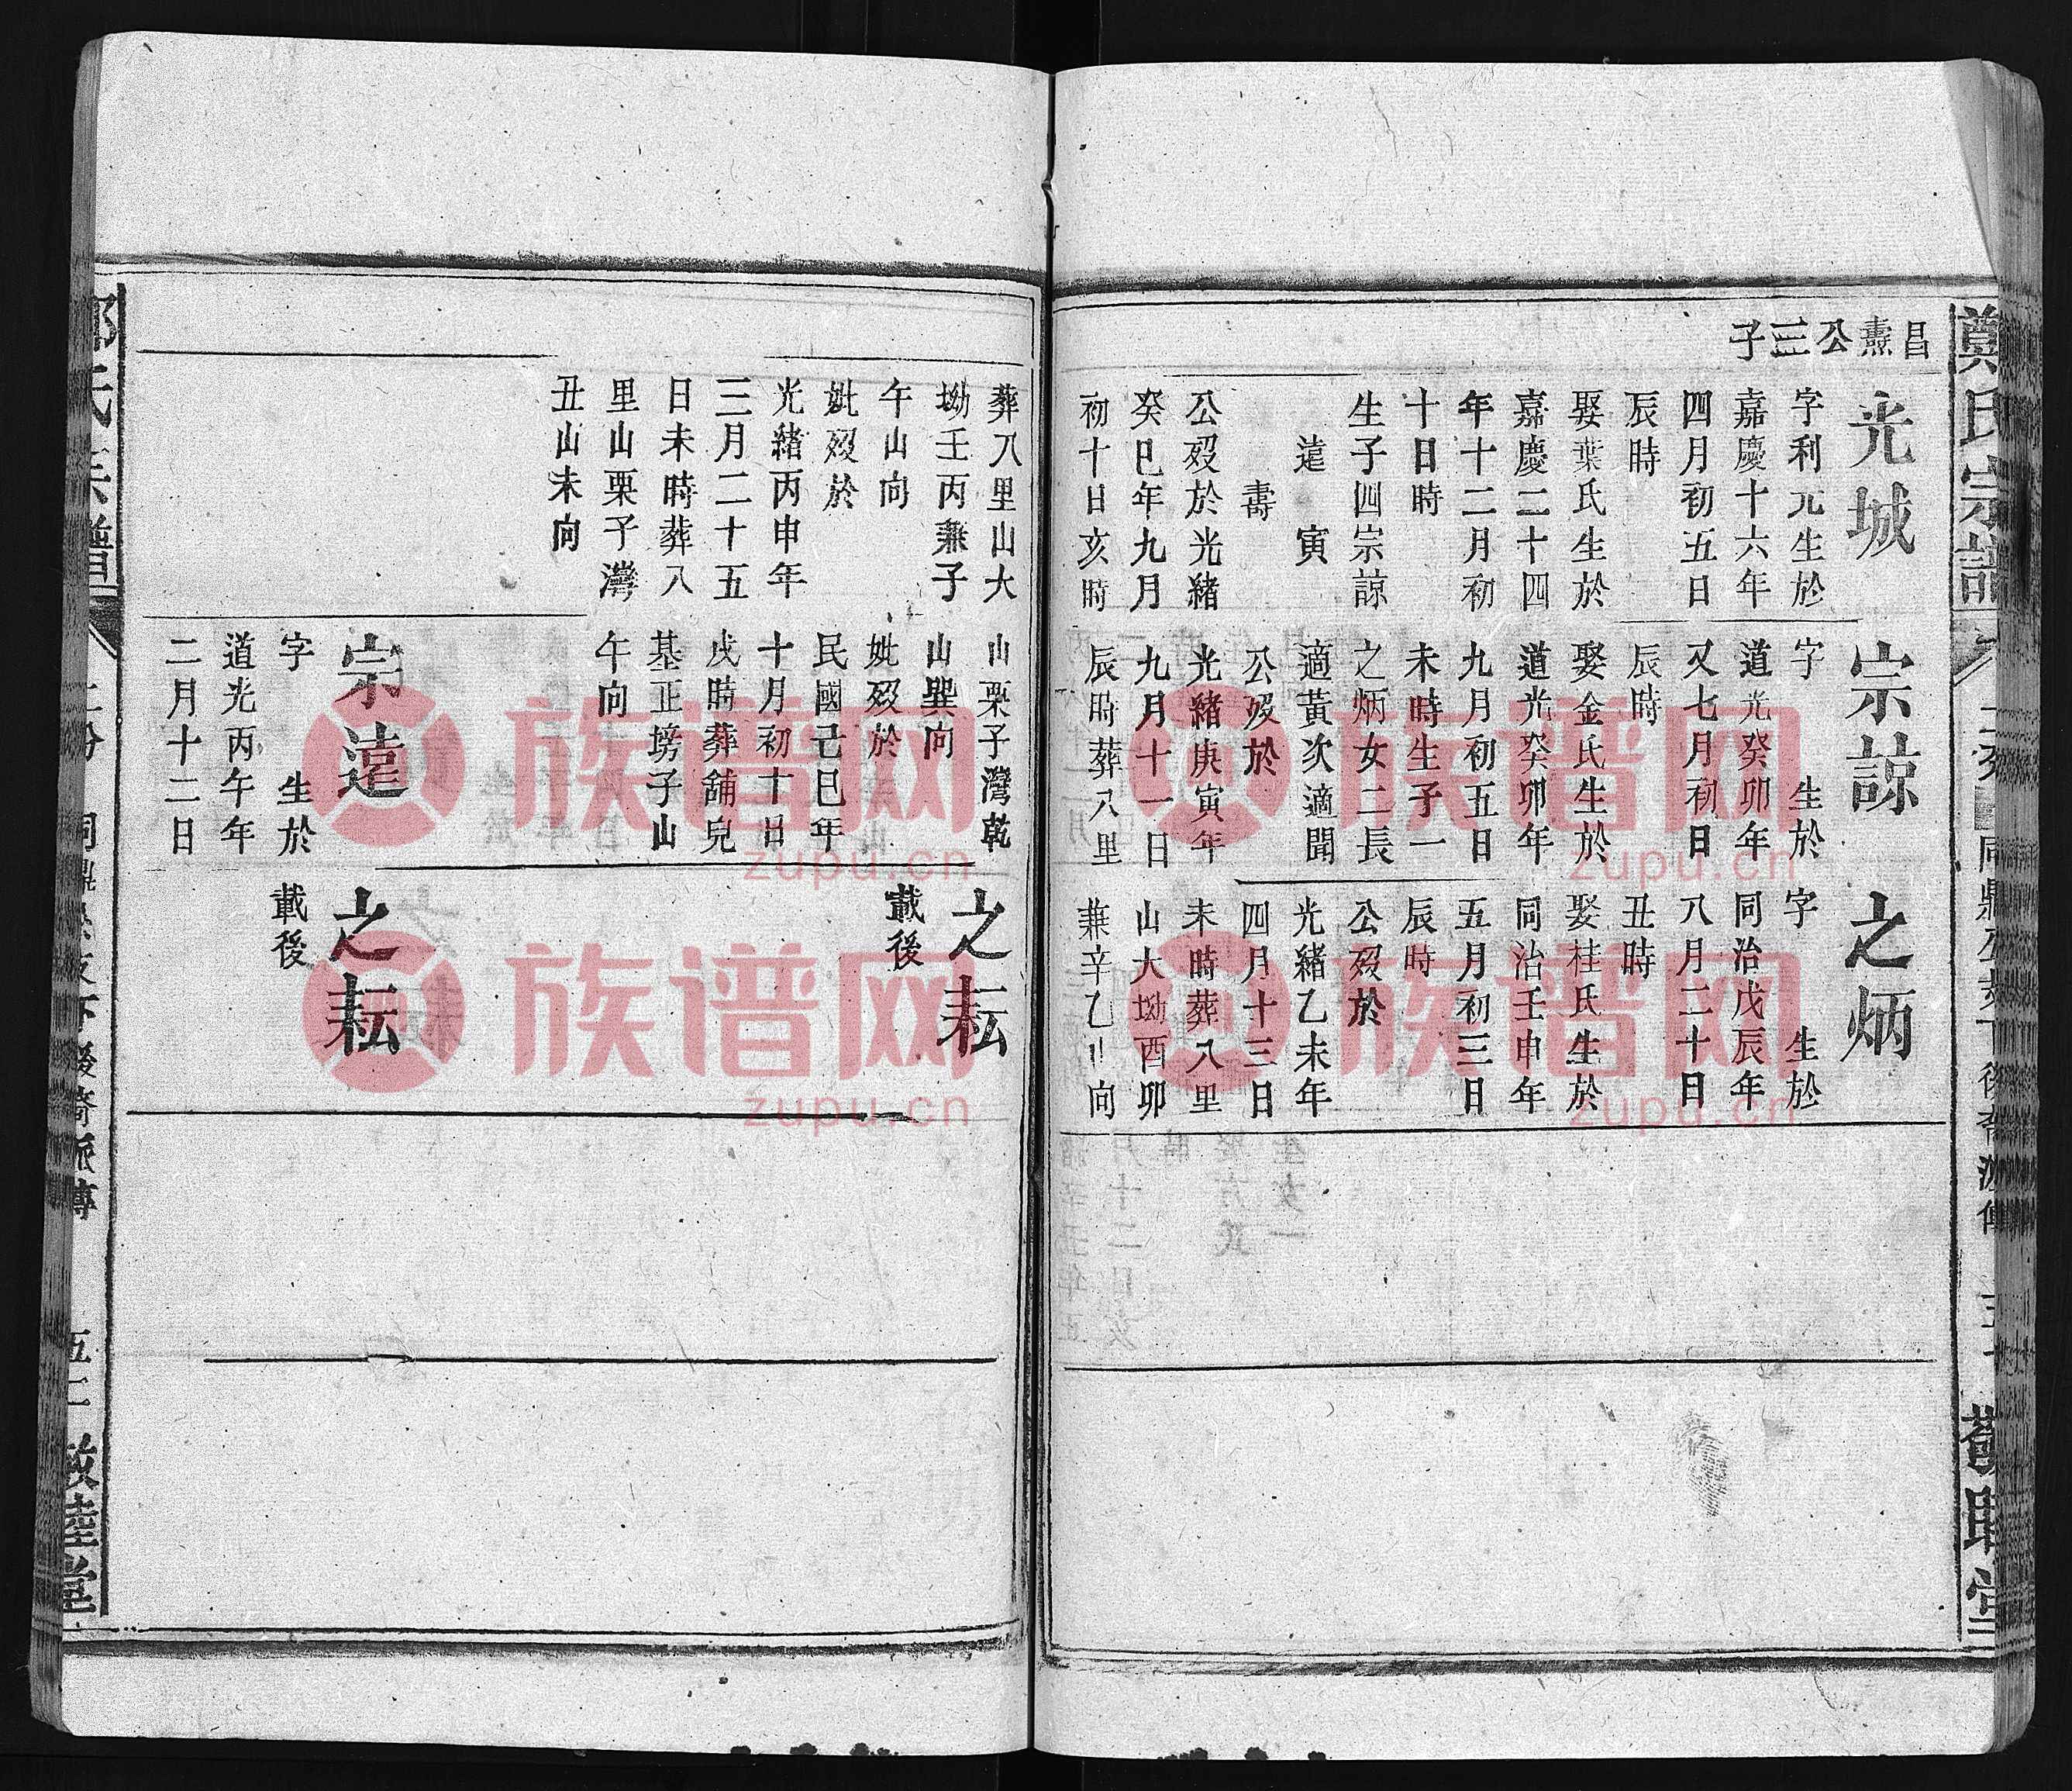 鄭氏宗譜
昌燾公三子
光城
字利元生於
嘉慶十六年
四月初五日
辰時
娶葉氏生於
嘉慶二十四
年十二月初
十日時
生子四宗諒
遠　寅
壽
公歿於光緒
癸巳年九月
初十日亥時
宗諒
字　生於
道光癸卯年
又七月初日
辰時
娶金氏生於
道光癸卯年
九月初五日
未時生子一
之炳女二長
適黃次適聞
公歿於
光緒庚寅年
九月十一日
辰時葬八里
之炳
字　生於
同治戊辰年
八月二十日
丑時
娶桂氏生於
同治壬申年
五月初三日
辰時
公歿於
光緒乙未年
四月十三日
未時葬八里
山大坳酉卯
兼辛乙山向
葬八里山大
坳壬丙兼子
午山向
妣歿於
光緒丙申年
三月二十五
日未時葬八
里山栗子灣
丑山未向
山栗子灣乾
山巽向
妣歿於
民國己巳年
十月初十日
戌時葬舖兒
基正塝子山
午向
宗遠
字　生於
道光丙午年
二月十二日
之耘
載後
之耘
載後
氏宗譜
五二
敦睦堂
zupu.cn
族谱网
zupu.cn
族谱网
zupu.cn
族谱网
zupu.cn
族谱网